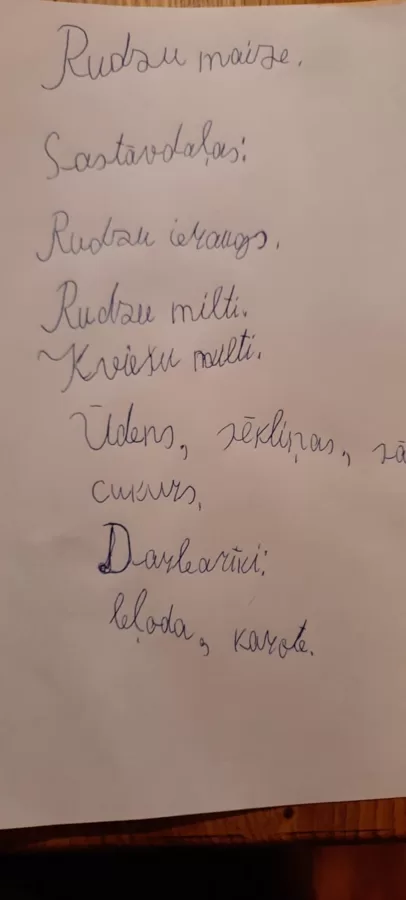 Rudzu maize.
Sastāvdaļas:
Rudzu ieraugs.
Rudzu milti.
Kviešu milti.
Ūdens, sēkliņas, sā
cukurs,
Darbarīki:
bļoda, karote.